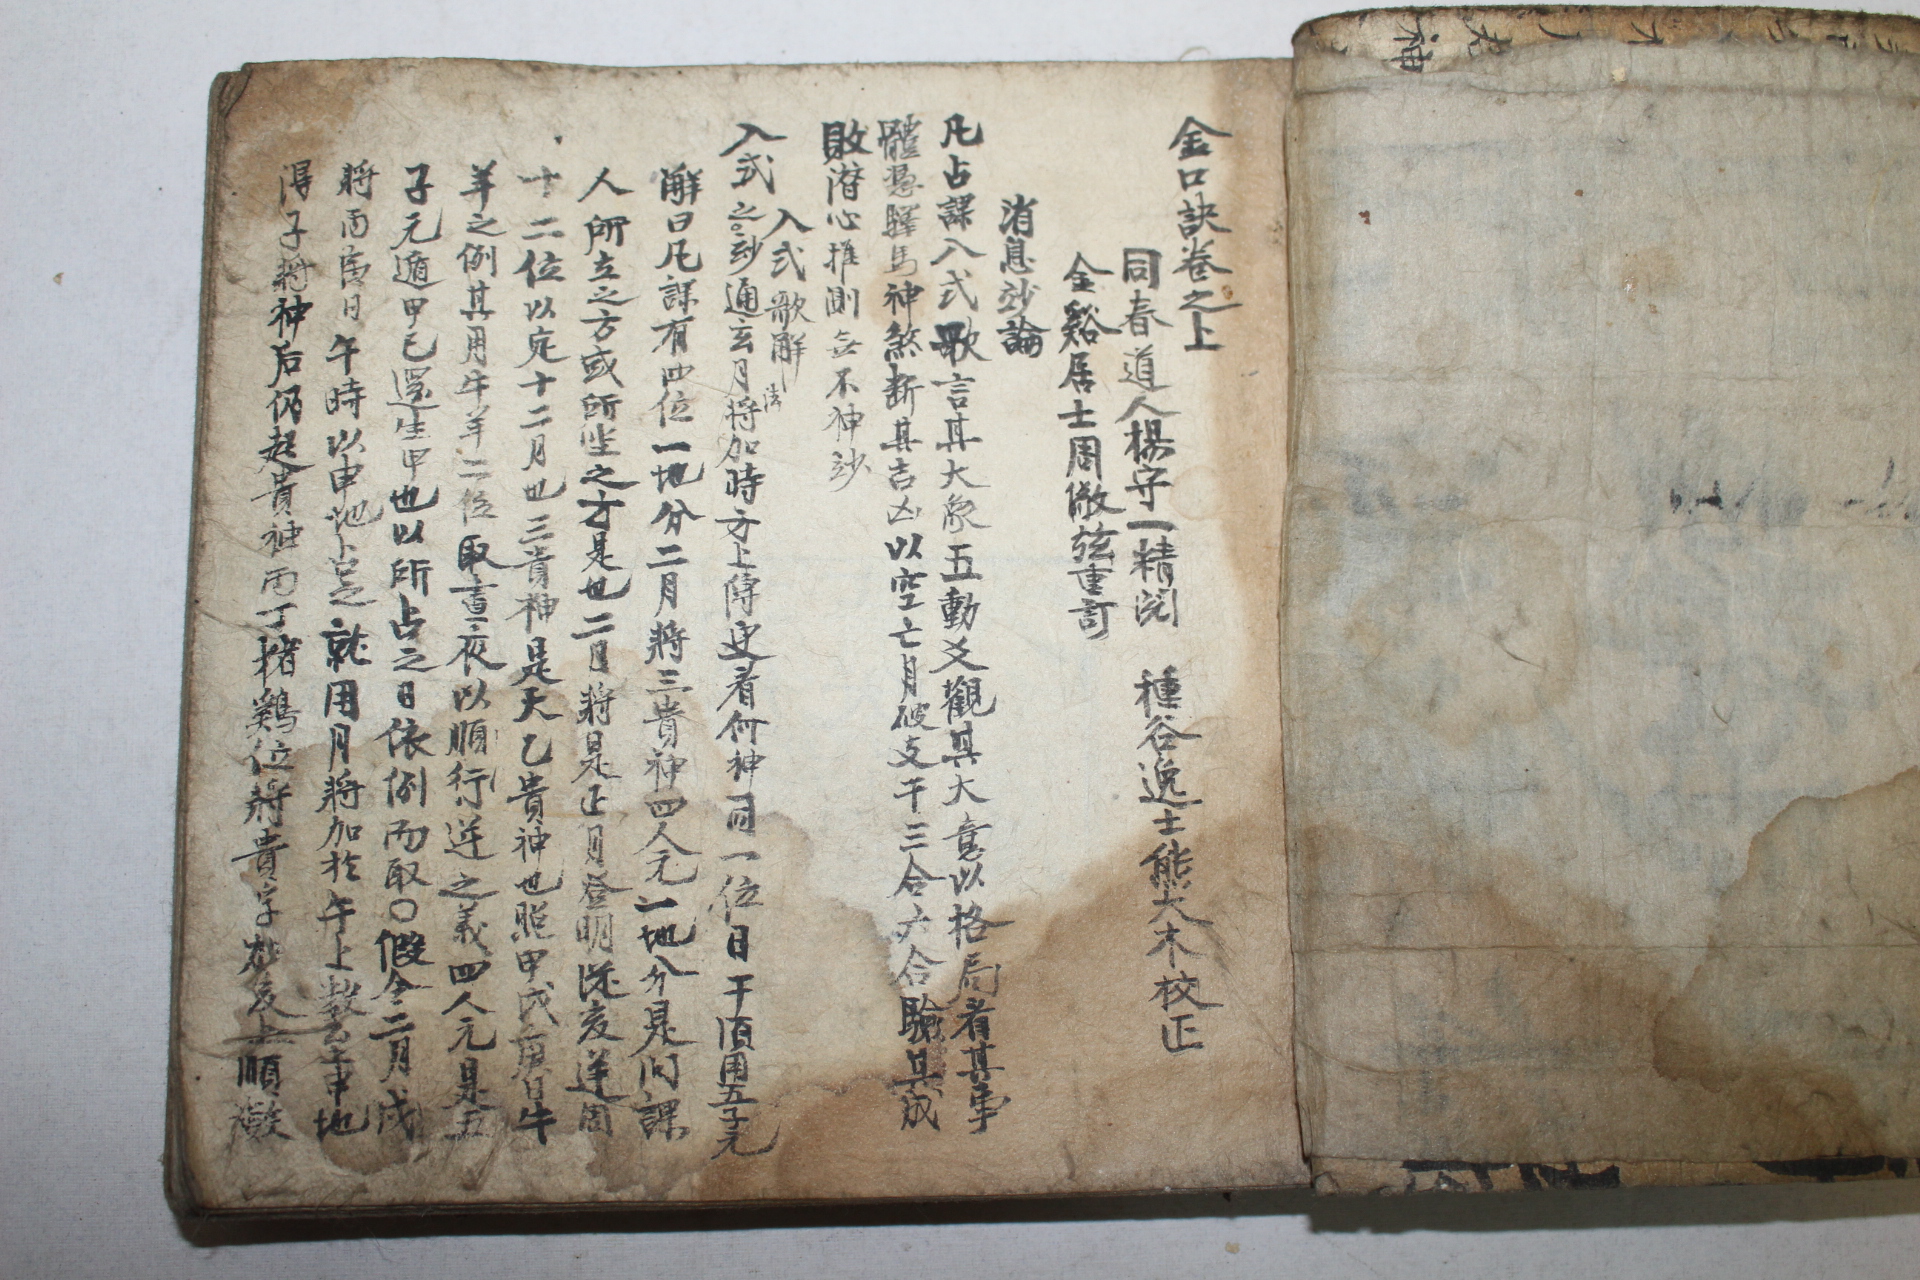 金口訣卷之上
同春道人楊守一精閱　種谷逸士熊大木校正
金谿居士周儆弦重訂
消息妙論
凡占課入式歌言其大象五動爻觀其大意以格局看其事
體憑驛馬神煞斷其吉凶以空亡月破支干三合六合驗其成
敗潛心推測無不神妙
入式歌解
入式之法玅通玄月將加時方上傳更看何神同一位日干須用五子元
解曰凡課有四位一地分二月將三貴神四人元一地分是問課
人所立之方或所坐之方是也二月將是正月登明從亥逆周
十二位以定十二月也三貴神是天乙貴神也照甲戊庚日牛
羊之例其用牛羊二位取晝夜以順行逆之義四人元是五
子元遁甲己還生甲也以所占之日依例而取○假令二月戌
將丙寅日午時以申地占之就用月將加於午上數去至申地
得子將神后仍起貴神丙丁猪鷄位將貴字於亥上順數
神